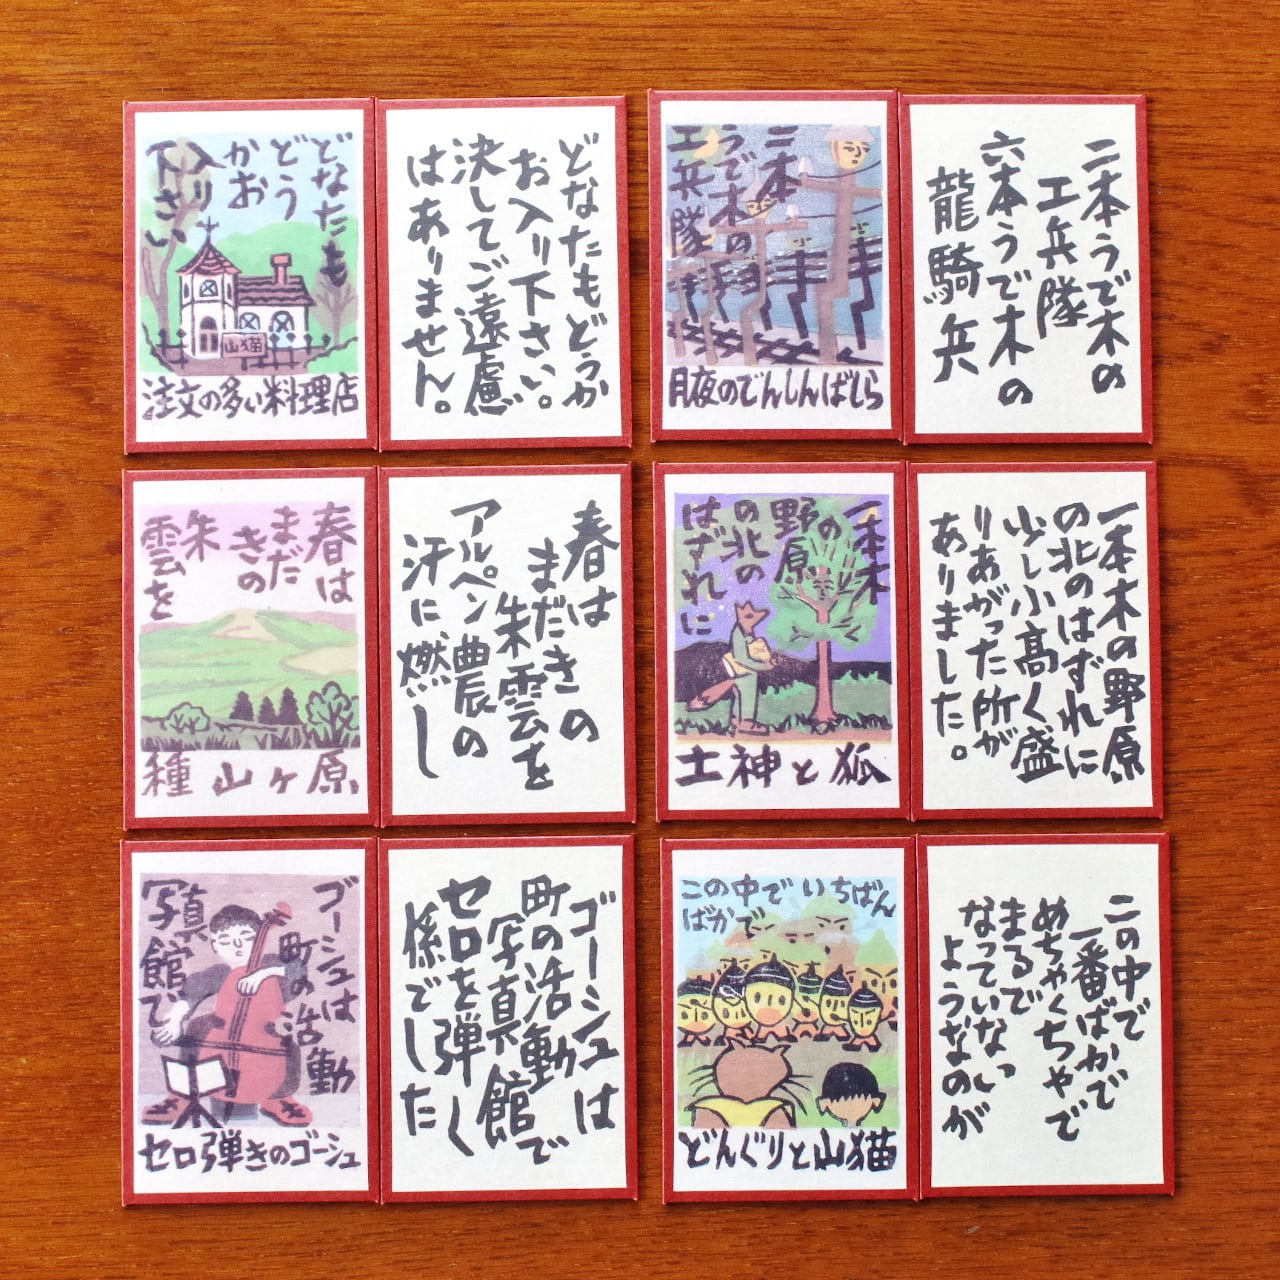 どなたも
どう
かお
入り
下さい
山猫
注文の多い料理店
どなたもどうか
お入り下さい。
決してご遠慮
はありません。
二本
うで木の
工兵隊
月夜のでんしんばしら
二本うで木の
工兵隊
六本うで木の
龍騎兵
春は
まだ
きの
朱
雲を
種山ヶ原
春は
まだきの
朱雲を
アルペン農の
汗に燃し
一本木
の
野原
の北の
はずれに
土神と狐
一本木の野原
の北のはずれに
少し小高く盛
りあがった所が
ありました。
ゴーシュは
町の活動
写真
館で
セロ弾きのゴーシュ
ゴーシュは
町の活動
写真館で
セロを弾く
係でした
この中でいちばん
ばかで
どんぐりと山猫
この中で
一番ばかで
めちゃくちゃで
まるで
なっていないっ
ようなのが